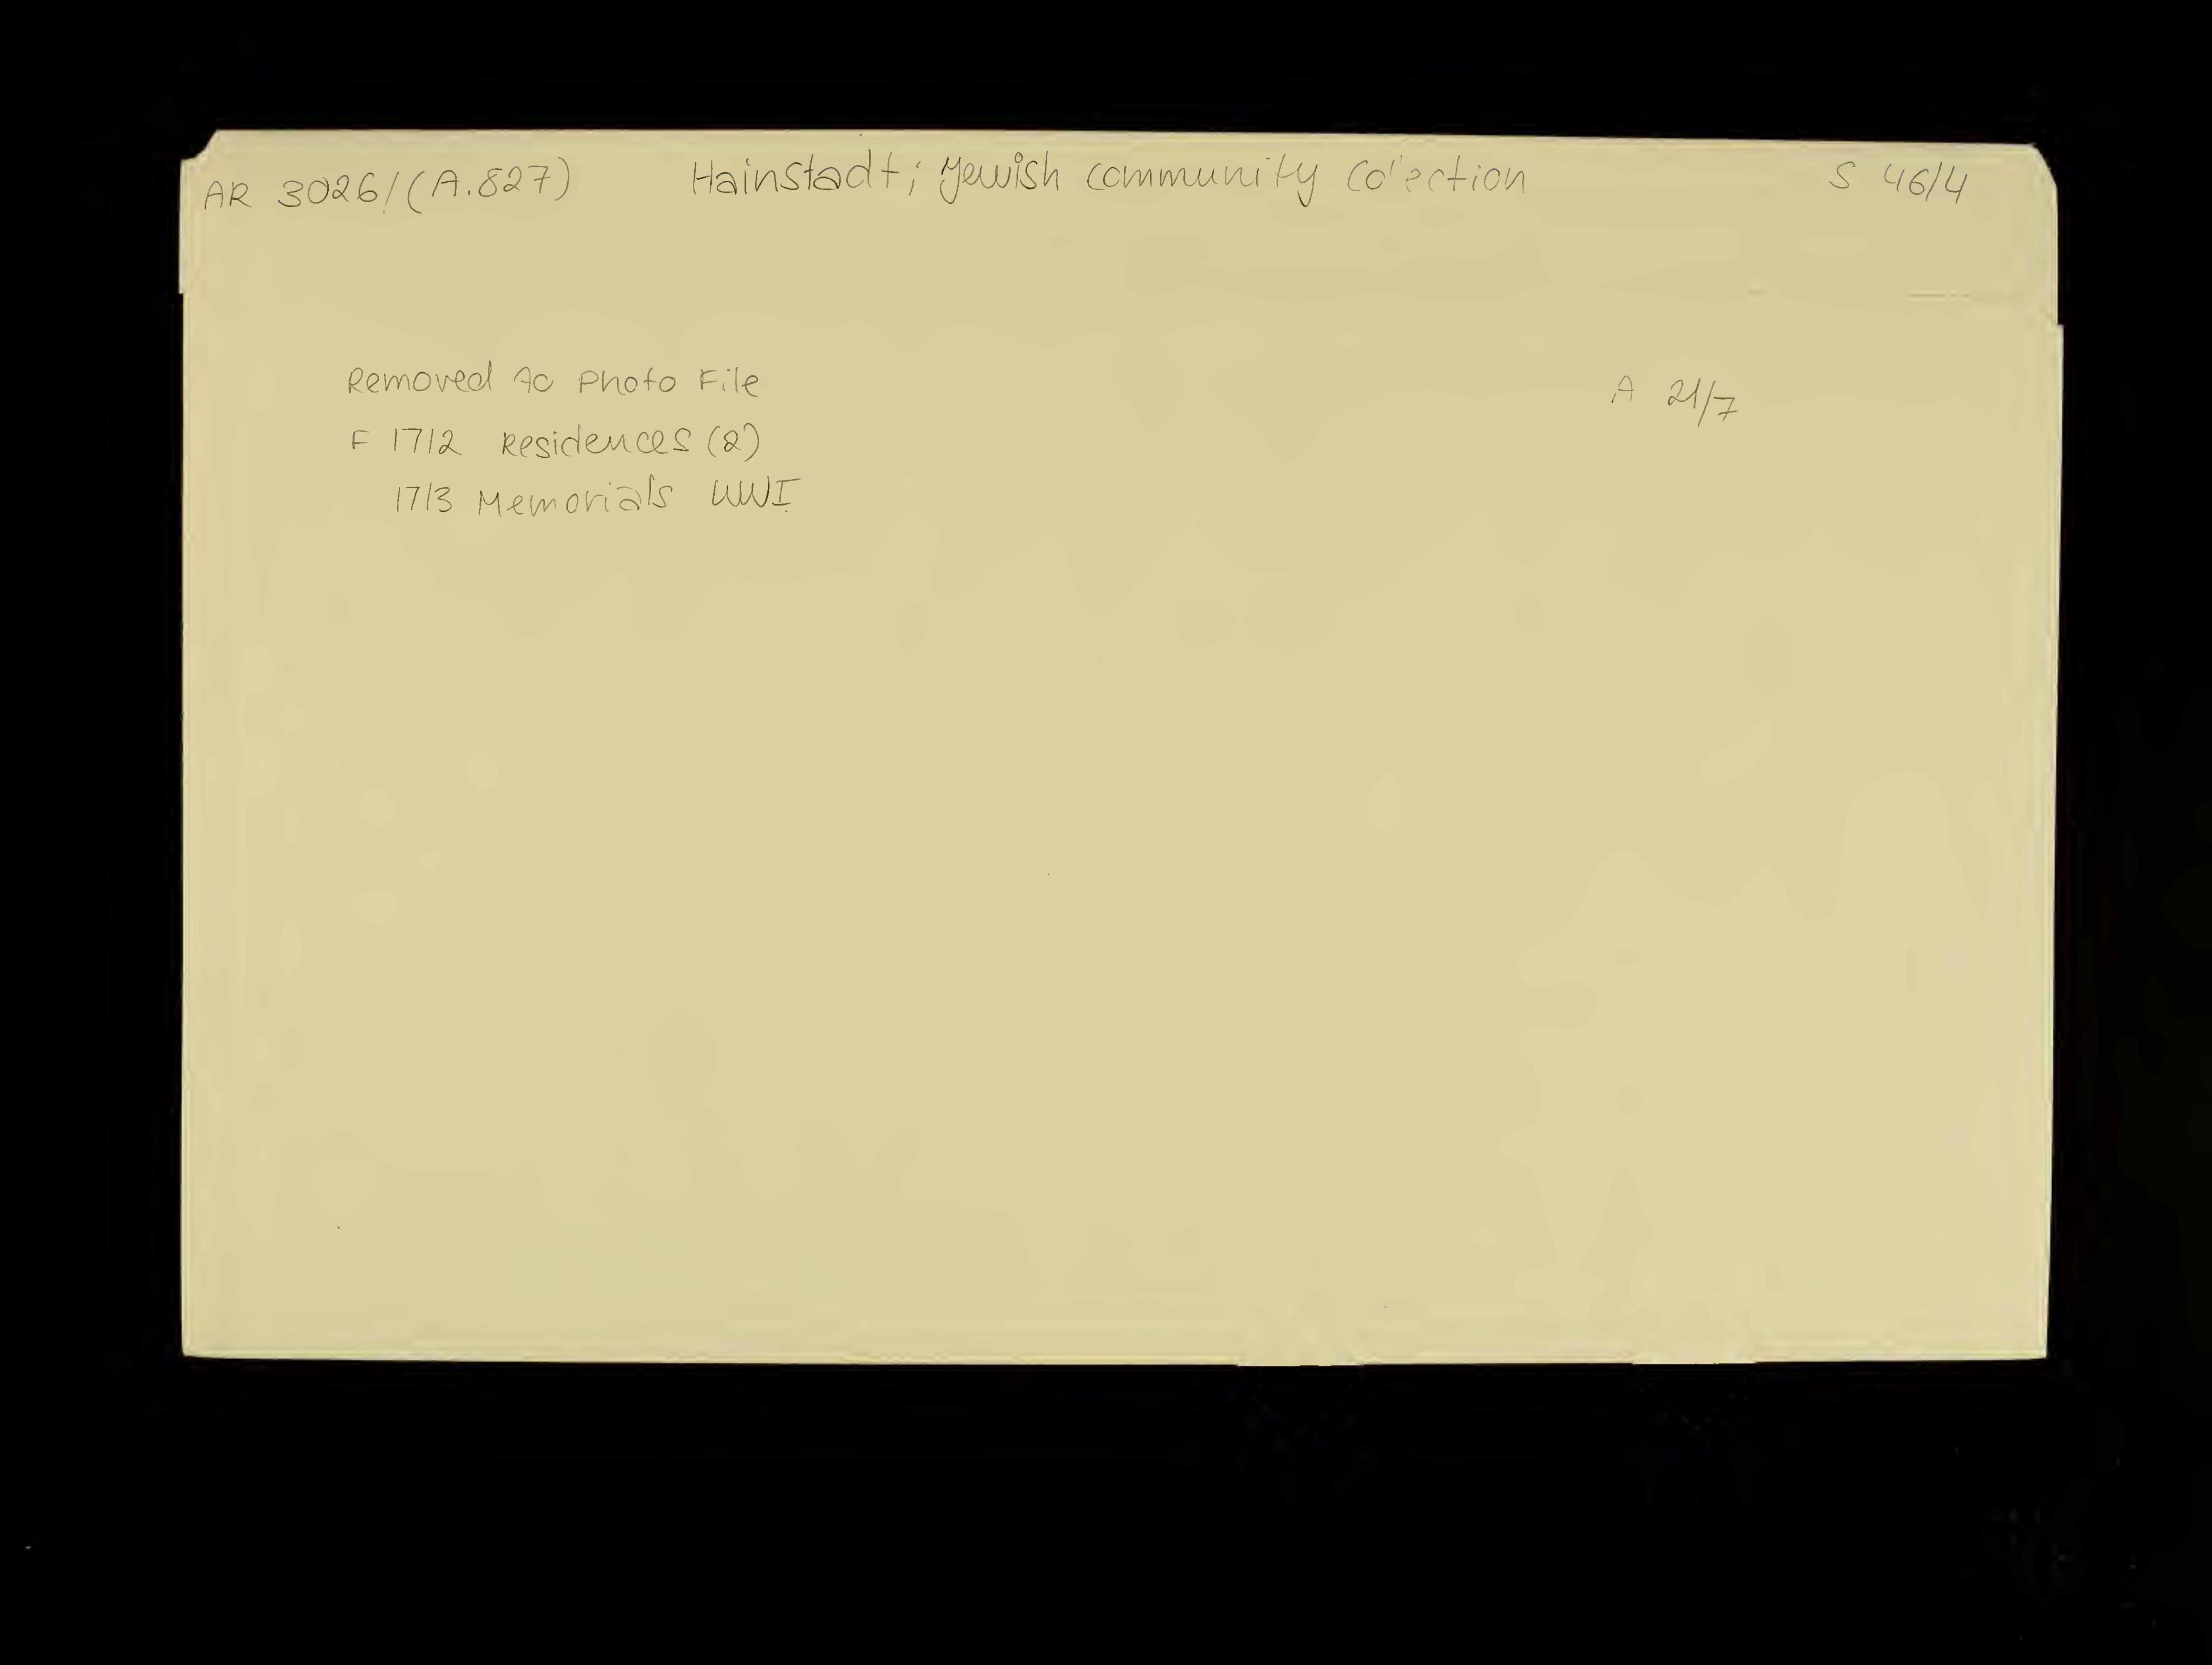 AR 3026/(A.827) Hainstadt; Jewish community Collection S 46/4
Removed to Photo File A 21/7
F 1712 Residences (2)
1713 Memorials WWI